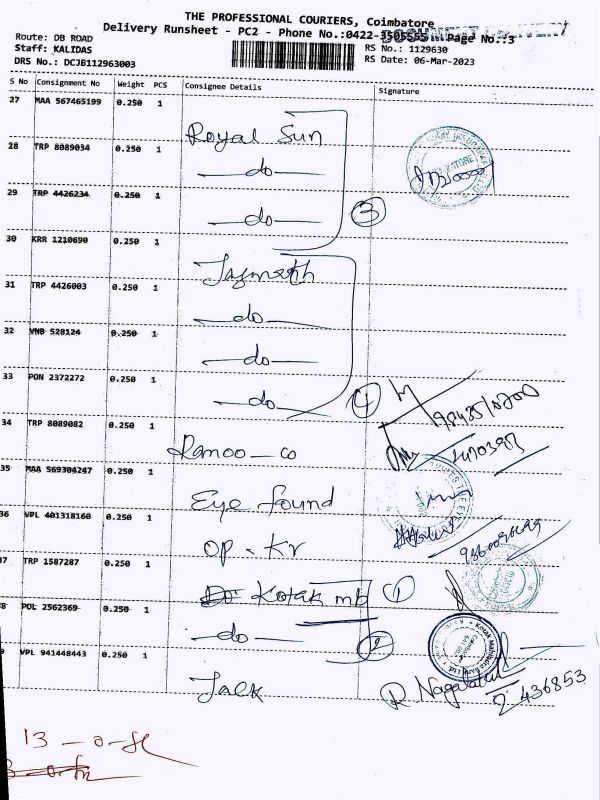 THE PROFESSIONAL COURIERS, Coimbatore
Delivery Runsheet - PC2 - Phone No.:0422-3505555 Page No.:3
Route: DB ROAD
Staff: KALIDAS
DRS No.: DCJB112963003
RS No.: 1129630
RS Date: 06-Mar-2023
S No Consignment No Weight PCS Consignee Details Signature
27 MAA 567465199 0.250 1 Royal Sun
28 TRP 8089034 0.250 1 —do—
29 TRP 4426234 0.250 1 —do— 3
30 KRR 1210690 0.250 1
31 TRP 4426003 0.250 1 —do—
32 VNB 528124 0.250 1 —do—
33 PON 2372272 0.250 1 —do— 4
34 TRP 8089082 0.250 1 Ramoo - co
35 MAA 569304247 0.250 1 Eye found
36 VPL 401318160 0.250 1 OP - Kr
37 TRP 1587287 0.250 1 Kotak mb 1
38 POL 2562369 0.250 1 —do— 2
39 VPL 941448443 0.250 1
R. Nagalatu
436853